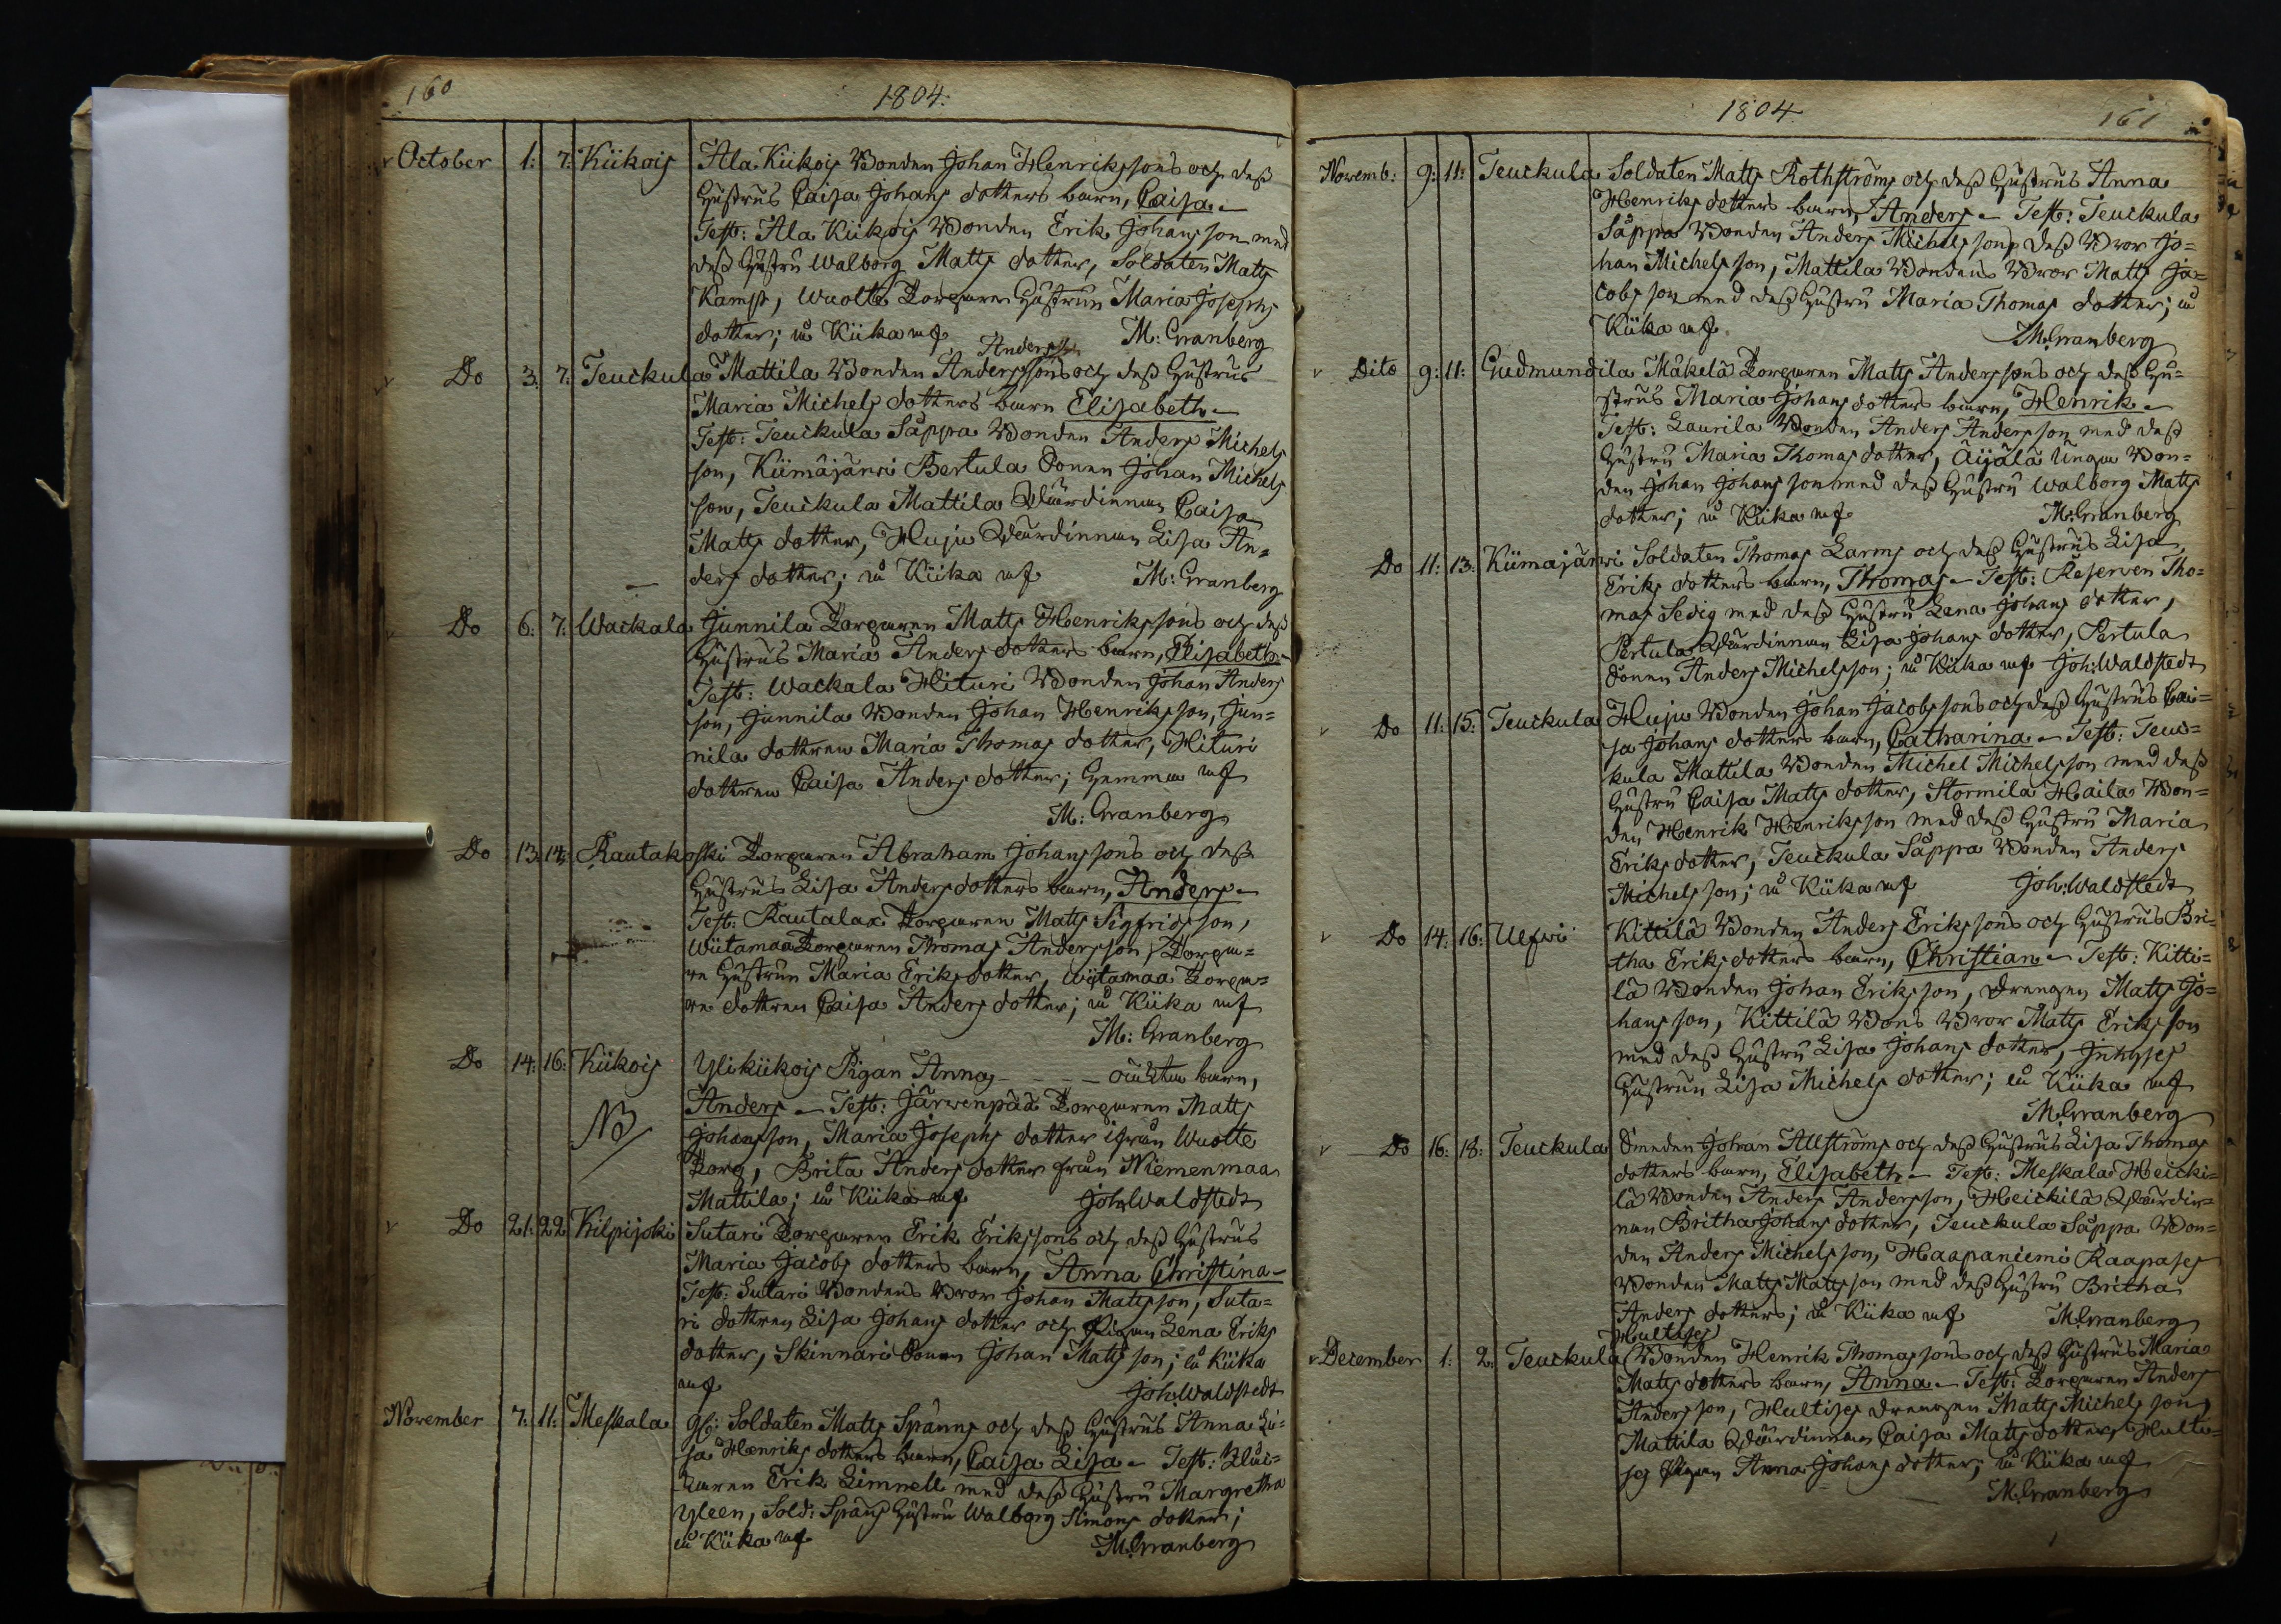 160
1804.
October 1: 7. Kiikois Ala Kiikois Bonden Johan Henrikssons och dess
hustrus Caisa Johans dotters barn, Caisa.
Test: Ala Kiikois Bonden Erik Johansson med
dess hustru Walborg Matts dotter, Soldaten Matts
Kamp, Wuolte Torparen hustrun Maria Josephs
dotter; på Kiika af M: Granberg
Anders
Do 3. 7. Teuckula Mattila Bonden Anderssons och dess hustrus
Maria Michels dotters barn Elisabeth
Test: Teuckula Säppa Bonden Anders Michels
son, Kiimajärvi Bertula Sonen Johan Michels
son, Teuckula Mattila Wärdinnan Caisa
Matts dotter, Huju Wärdinnan Lisa An=
ders dotter; på Kiika af M: Granberg
Do 6. 7. Wackala Junnila Torparen Matts Henrikssons och dess
hustrus Maria Anders dotters barn, Elisabeth
Test: Wackala Hituri Bonden Johan Anders
son, Junnila Bonden Johan Henriksson, Jun=
nila dottren Maria Thomas dotter, Hituri
dottren Caisa Anders dotter; hemma af
M: Granberg
Do 13. 14. Rautakoski Torparen Abraham Johanssons och dess
hustrus Lisa Anders dotters barn, Anders
Test: Rautalax Torparen Matts Sigfridsson,
Wiitamaa Torparen Thomas Andersson, Torpa=
re hustrun Maria Eriks dotter, Wiitamaa Torpa=
re dottren Caisa Anders dotter; på Kiika af
M: Granberg
Do 14. 16: Kiikois Ylikiikois Pigan Annas - - - oäkta barn,
NB Anders Test: Järwenpää Torparen Matts
Johansson, Maria Josephs dotter ifrån Wuolte
Torp, Brita Anders dotter från Niemenmaa
Mattila; på Kiika af Joh: Waldstedt
Do 21. 22. Kilpijoki Sutari Torparen Erik Erikssons och dess hustrus
Maria Jacobs dotters barn, Anna Christina
Test: Sutari Bondens Bror Johan Mattsson, Suta=
ri dottren Lisa Johans dotter och Pigan Lena Eriks
dotter, Skinnari Sonen Johan Mattsson; på Kiika
af Joh: Waldstedt
November 7. 11: Meskala Soldaten Matts Spänns och dess hustrus Anna Li=
sa Henriks dotters barn, Caisa Lisa Test: Kluc=
karen Erik Limnell med dess hustru Margretha
Yleen, Sold: Späns hustru Walborg Simons dotter;
på Kiika af M: Granberg
1804.
161
Novemb: 9: 11: Teuckula Soldaten Matts Rothströms och dess hustrus Anna
Henriks dotters barn, Anders Test: Teuckula
Säppa Bonden Anders Michelsson, dess Bror Jo=
han Michelsson, Mattila Bondens Bror Matts Ja=
cobsson med dess hustru Maria Thomas dotter; på
Kiika af M: Granberg
Dito 9: 11: Gudmundila Mäkelä Torparen Matts Anderssons och dess hu=
strus Maria Johans dotters barn, Henrik
Test: Laurila Bonden Anders Andersson med dess
hustru Maria Thomas dotter, Äijälä Unga Bon=
den Johan Johansson med dess hustru Walborg Matts
dotter; på Kiika af M: Granberg
Do 11: 13: Kiimajärvi Soldaten Thomas Larms och dess hustrus Lisa
Eriks dotters barn, Thomas Test: Reserven Tho=
mas Sedig med dess hustru Lena Johans dotter,
Pertula Wärdinnan Lisa Johans dotter, Pertula
Sonen Anders Michelsson; på Kiika af Joh: Waldstedt
Do 11: 15: Teuckula Huju Bonden Johan Jacobssons och dess hustrus Cai=
sa Johans dotters barn, Catharina Test: Teuc=
kula Mattila Bonden Michel Michelsson med dess
hustru Caisa Matts dotter, Stormila Haila Bon=
den Henrik Henriksson med dess hustru Maria
Eriks dotter, Teuckula Säppa Bonden Anders
Michelsson; på Kiika af Joh: Waldstedt
Do 14: 16: Uefwi Kittilä Bonden Anders Erikssons och hustrus Bri=
tha Eriks dotters barn, Christian Test: Kitti=
lä Bonden Johan Eriksson, Drengen Matts Jo=
hansson, Kittilä Bons Bror Matts Eriksson
med dess hustru Lisa Johans dotter,
hustrun Lisa Michels dotter; på Kiika af
M: Granberg
Do 16: 18: Teuckula Smeden Johan Allströms och dess hustrus Lisa Thomas
dotters barn, Elisabeth Test: Meskala Heicki=
lä Bonden Anders Andersson, Heickilä Wärdin=
nan Britha Johans dotter, Teuckula Säppa Bon=
den Anders Michelsson, Haapaniemi Raapases
Bonden Matts Mattsson med dess hustru Britha
Anders dotters; på Kiika af M: Granberg
Hultises
December 1: 2: Teuckula Bonden Henrik Thomassons och dess hustrus Maria
Matts dotters barn, Anna Test: Torparen Anders
Andersson, Hultises Drengen Matts Michelsson,
Mattila Wärdinnan Caisa Matts dotter, Hulti=
ses Pigan Anna Johans dotter; på Kiika af
M: Granberg